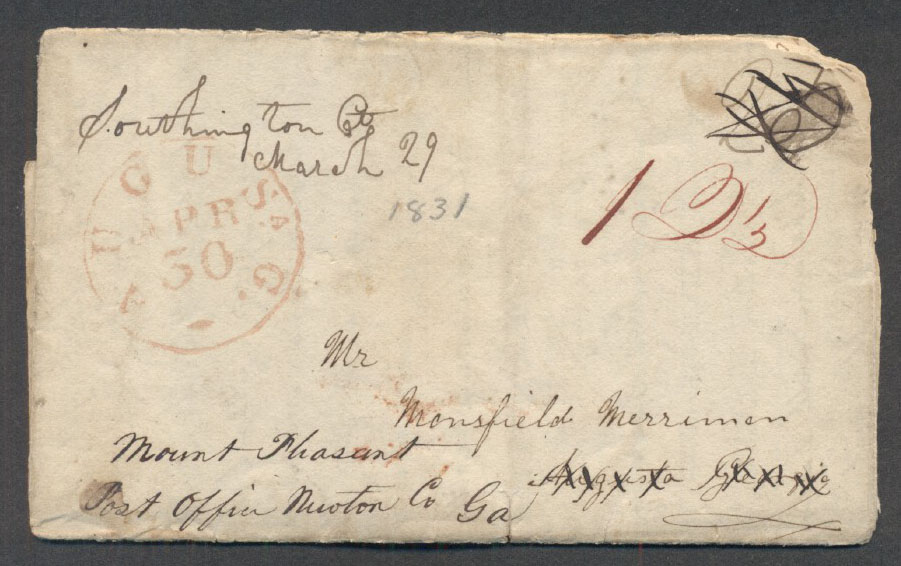 Southington Ct
March 29
1831
AUGUSTA G.
APR
30
1 D 1/2
Mr
Monsfield Merriman
Mount Pleasant
Augusta Georgia
Post Office Newton Co Ga